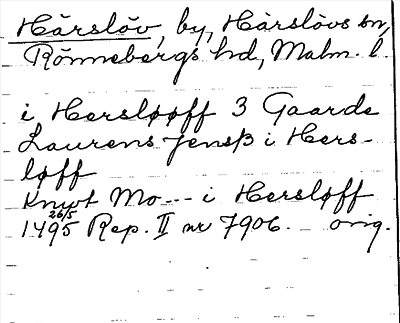 Hårslöv, by, Hårslövs sn,
Rönnebergs hd, Malm. l.
i Hersløøff 3 Gaarde
Laurens Jensß i Hers-
løff
Knwt Mo--- i Hersløff
1495 26/5 Rep. II nr 7906. orig.